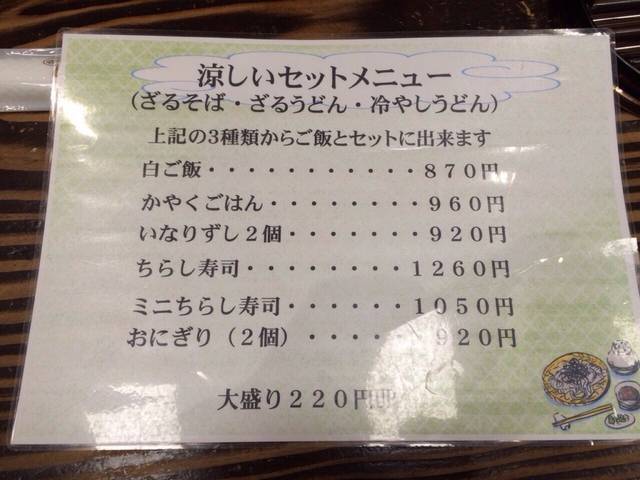 涼しいセットメニュー
(ざるそば・ざるうどん・冷やしうどん)
上記の3種類からご飯とセットに出来ます
白ご飯・・・・・・・・・・・８７０円
かやくごはん・・・・・・・・９６０円
いなりずし２個・・・・・・・９２０円
ちらし寿司・・・・・・・・１２６０円
ミニちらし寿司・・・・・・１０５０円
おにぎり（２個）・・・・・９２０円
大盛り２２０円UP